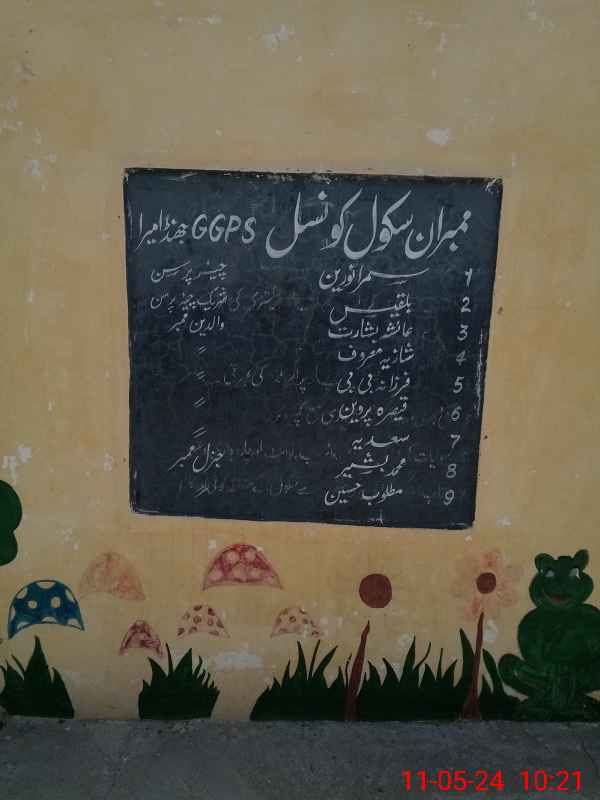 ممبران سکول کونسل GGPS جھنڈا میرا
1 سمرا نورین چیئر پرسن
2 بلقیس شریک چیئر پرسن
3 عائشہ بشارت والدین ممبر
4 شازیہ معروف 〃
5 فرزانہ بی بی 〃
6 قیصرہ پروین 〃
7 سعدیہ 〃
8 محمد بشیر جنرل ممبر
9 مطلوب حسین 〃
11-05-24 10:21